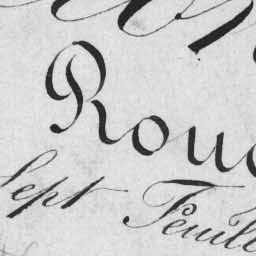 Rou
Sept Feuill